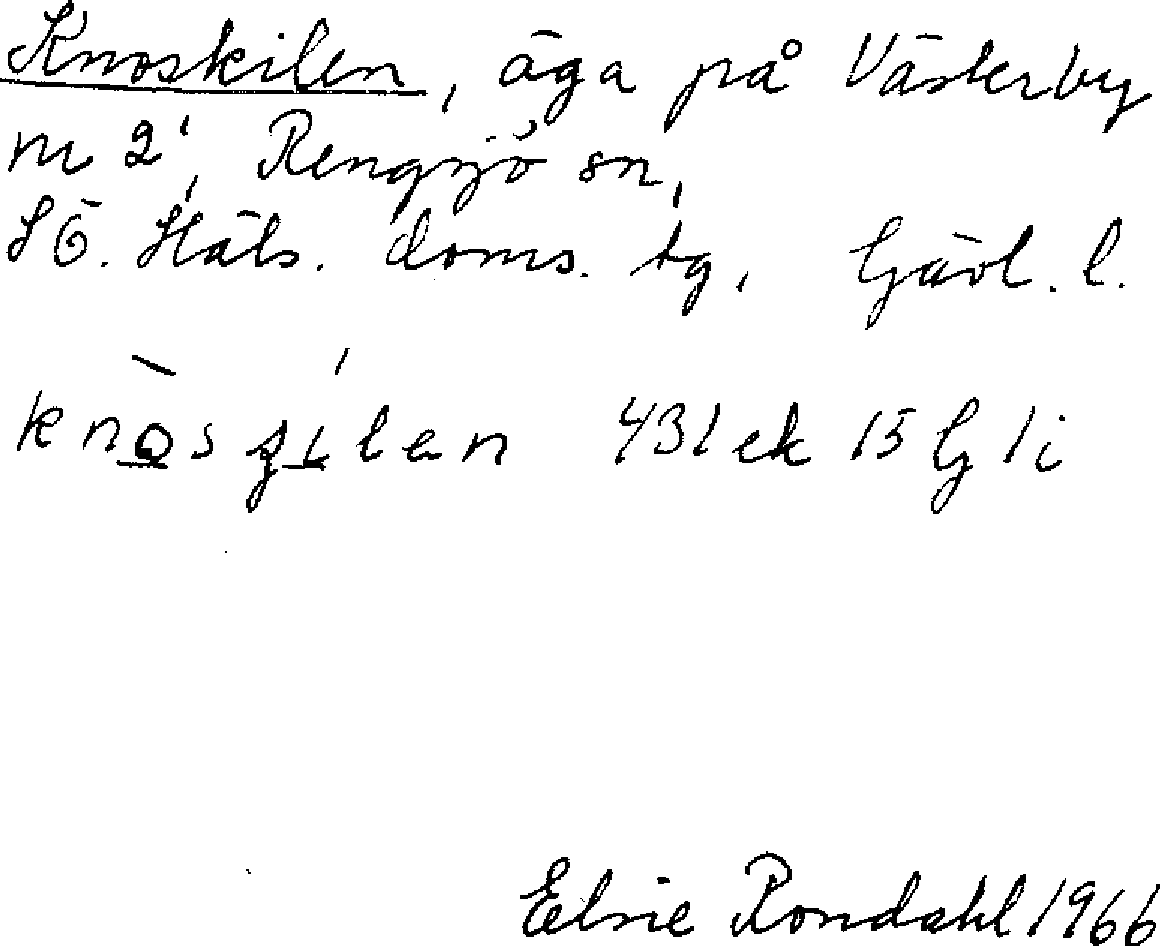 Knoskilen, äga på Västerby
nr 2, Rengsjö sn,
SÖ. Häls. doms. tg, Gävl. l.
knòsʒílen 431 ek 15 G 1 i
Elsie Rondahl 1966